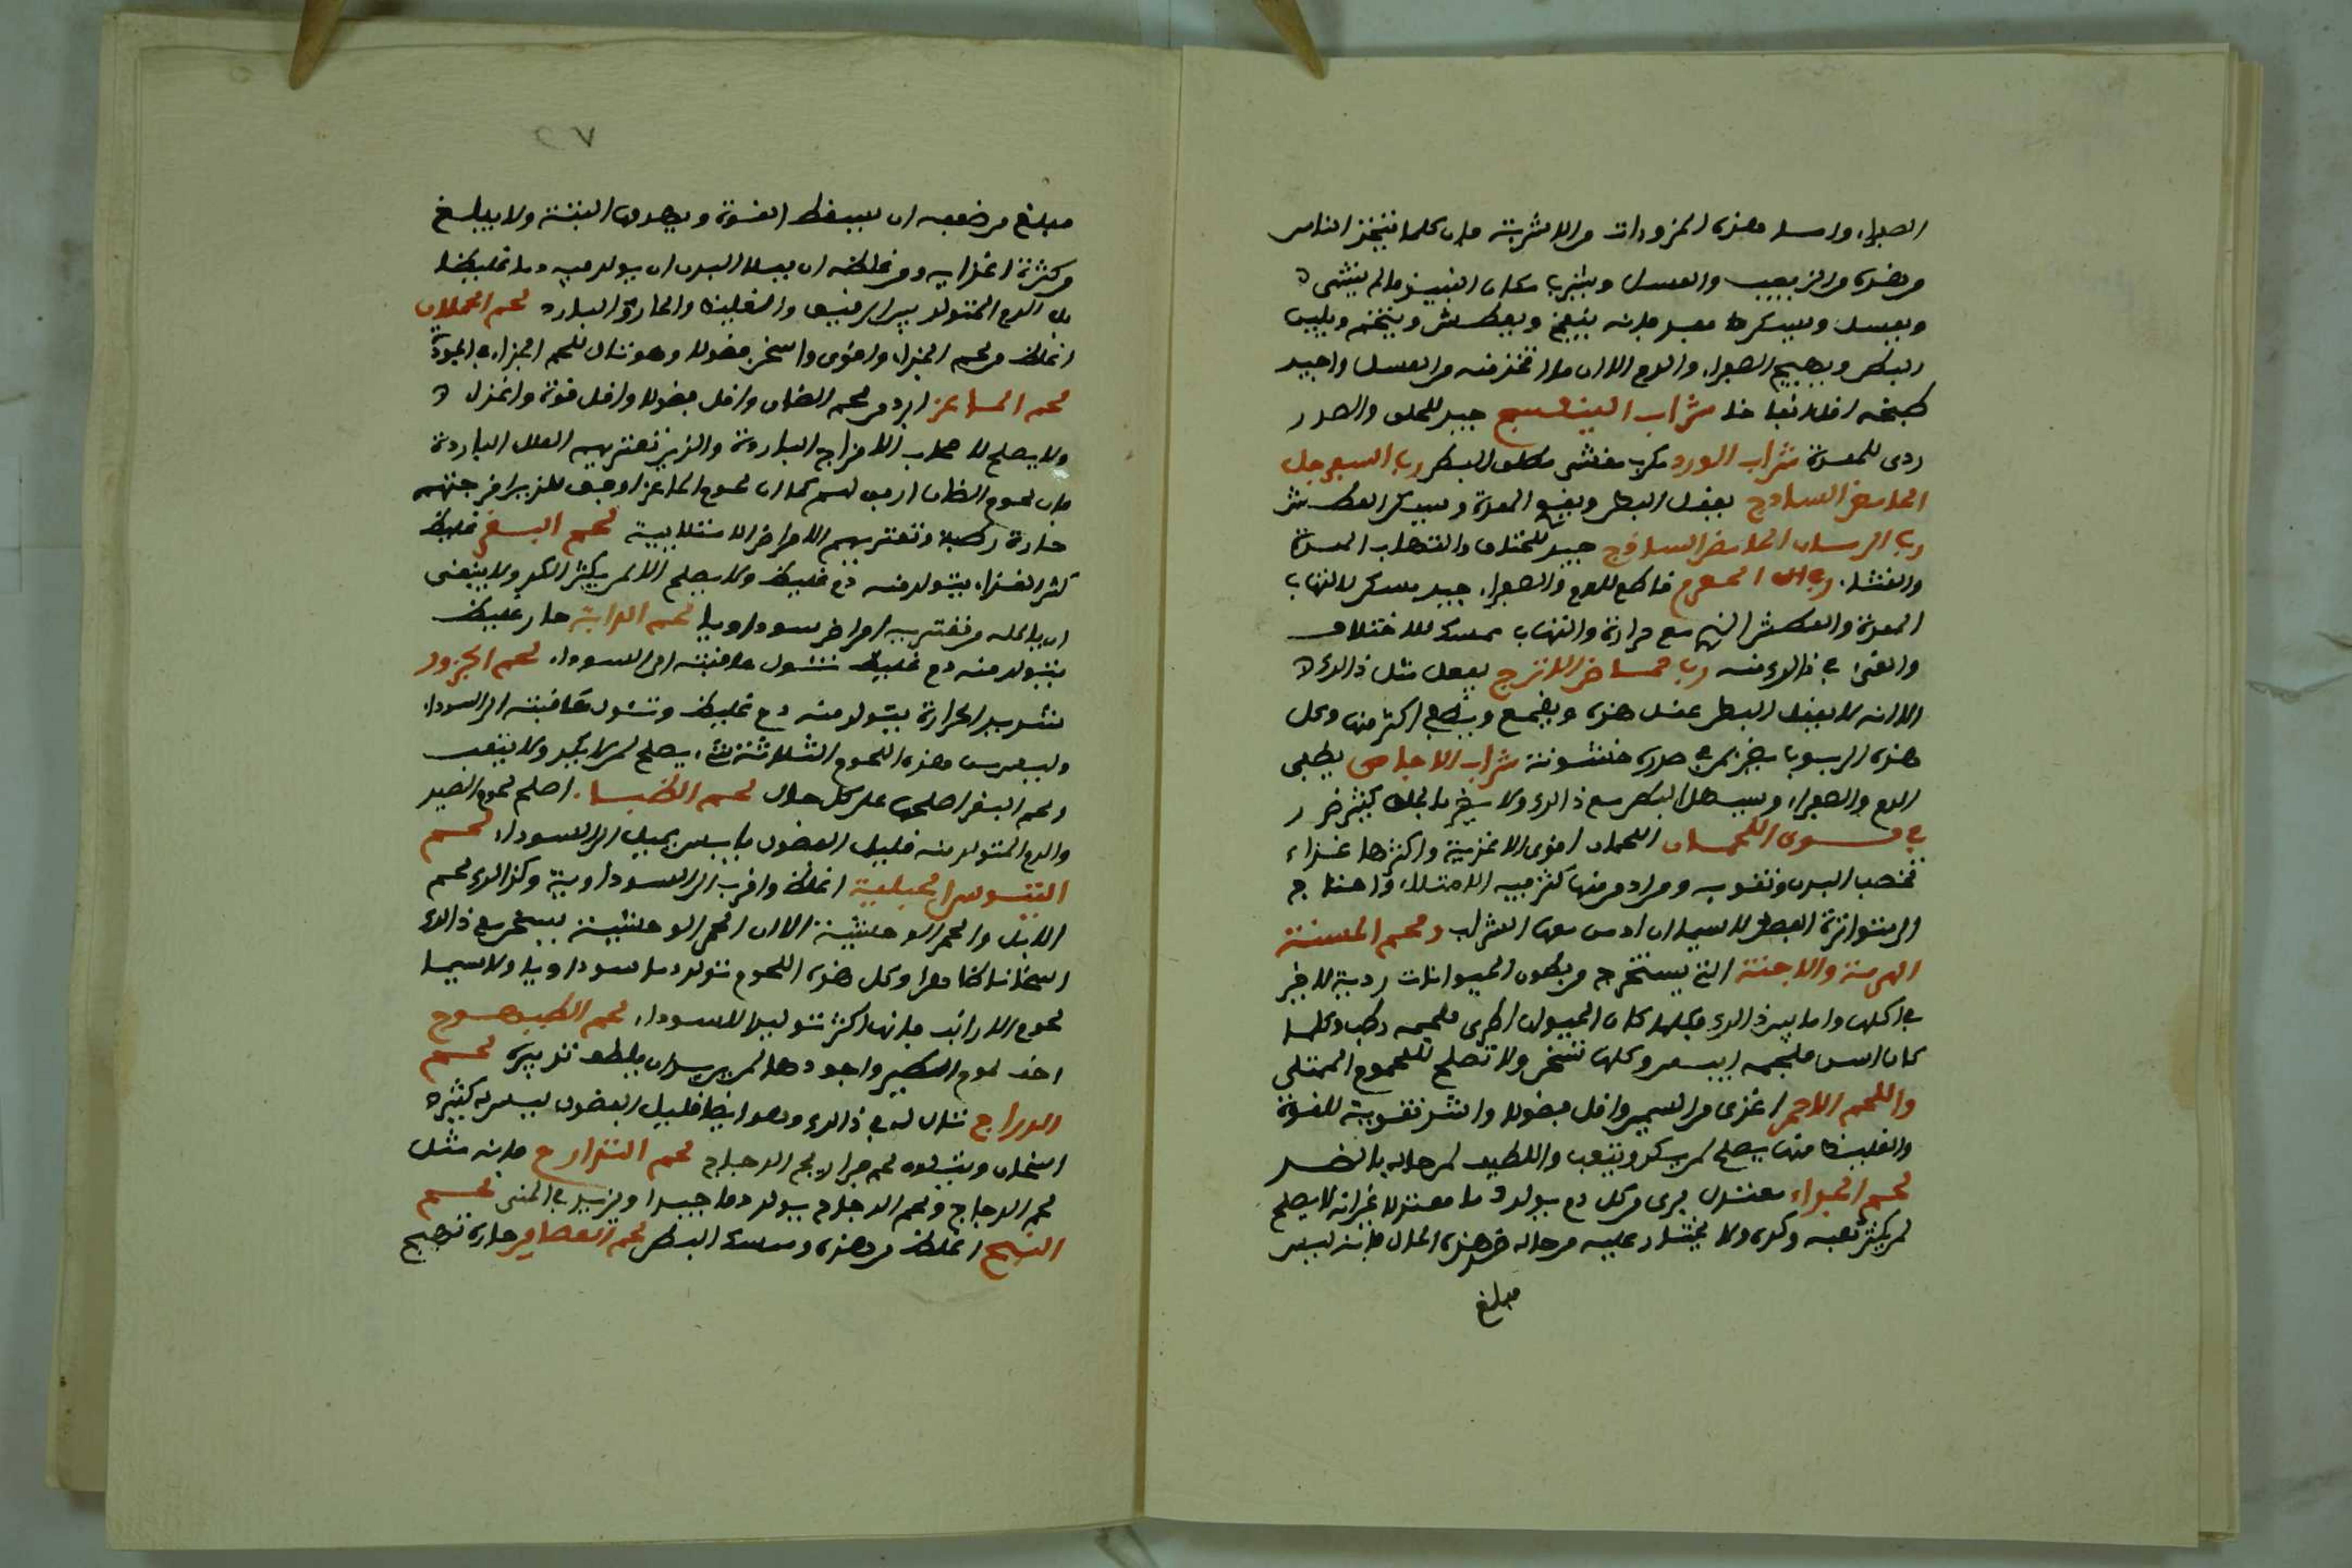 الصفراء واما هذه المزورات من الاشربة فان كلما يتخذ الناس
من هذه من الزبيب والعسل ويشرب مكان النبيذ ما لم ينشى
ويعسل ويسكر معسر فانه ينفخ ويعطش ويتخم ويلين
البطن ويهيج الصفراء والدم الا ان ما اتخذ منه من العسل واجيد
طبخه اقلا نفاخا شراب البنفسج جيد للحلق والصدر
ردى للمعدة شراب الورد مكرب مغشى مطلق للبطن رب السفرجل
الحامض الساذج يعقل البطن ويقوى المعدة ويسكن العطش
رب الرمان الحامض الساذج جيد للخفقان والتهاب المعدة
والغشاء رب الحصرم قاطع للدم والصفراء جيد مسكن لالتهاب
المعدة والعطش الذى مع حرارة والتهاب ممسك للاختلاف
والقى فى ذالك منه رب حماض الاترج يفعل مثل ذالك
الا انه لا يعقل البطن عقل هذه ويقمع ويطفى اكثر منها وكل
هذه الربوب يضر بمن فى صدره خشونة شراب الاجاص يطفى
الدم والصفراء ويسهل البطن مع ذالك ولا يضر بالحلق كثير ضرر
فى قوى اللحمان اللحمان اقوى الاغذية واكثرها غذاء
تخصب البدن وتقويه ومن ادمن منها كثر فيه الامتلاء واحتاج
الى متواترة الفصد لاسيما ان ادمن معها الشراب ولحم المسنة
الهرمة والاجنة التى يستخرج من بطون الحيوانات ردية لا خير
فى اكلها واما بين ذالك فكلما كان الحيوان اطرى فلحمه رطب وكلما
كان اسن فلحمه ايبس وكلها تسخن ولا تصلح للمحموم الممتلى
واللحم الاحمر اغذى من السمين واقل فضولا واشد تقوية للقوة
والغليظ منها يصلح لمن يكد ويتعب واللطيف لمن حاله بالضد
لحم الجداء معتدل برى من كل دم يولد دما معتدلا غير انه لا يصلح
لمن يكثر تعبه وكده ولا يختار عليه من حاله ضد هذه الحال فانه ليس
مبلغ
٢٧
مبلغ من ضعفه ان يسقط القوة ويهدن البنية ولا يبلغ
من كثرة اغذايه ومن غلظه ان يملا البدن ان يولد فيه دما غليظا
بل الدم المتولد بين الرقيق والغليظ والحار والبارد لحم الحملان
اغلظ من لحم الجداء واقوى واسخن فضولا وهو تال للحم الجداء فى الجودة
لحم الماعز ابرد من لحم الضان واقل فضولا واقل قوة واغذل
ولا يصلح لاصحاب الامزاج الباردة والذين تعتريهم العلل الباردة
فان لحوم الضان ارفق لهم كما ان لحوم الماعز اوفق للذين امزجتهم
حارة رطبة وتعتريهم الامراض الامتلايية لحم البقر غليظ
كثير الغذاء يتولد منه دم غليظ ولا يصلح الا لمن يكثر الكد ولا ينبغى
ان ياكله من تعتريه امراض سوداويا لحم الدابة حار غليظ
يتولد منه دم غليظ تئول عاقبته الى السوداء لحم الجزور
شديد الحرارة يتولد منه دم غليظ وتئول عاقبته الى السوداء
وليس من هذه اللحوم الثلاثة شىء يصلح لمن لا يكد ولا يتعب
ولحم البقر اصلحها على كل حال لحم الظباء اصلح لحوم الصيد
والدم المتولد منه قليل الفضول يابس يميل الى السوداء لحم
التيوس الجبلية اغلظ واقرب الى السوداوية وكذالك لحم
الابل والحمر الوحشية الا ان لحم الوحشية يسخن مع ذالك
اسخانا ظاهرا وكل هذه اللحوم تولد دما سوداويا ولا سيما
لحوم الارانب فانها اكثر توليدا للسوداء لحم الطيهوج
اخف لحوم الطير واجودها لمن يريد ان يلطف تدبيره لحم
الدراج تال له فى ذالك وهو ايضا قليل الفضول ليس له كثيره
اسخان ويتلوه لحم فراريج الدجاج لحم التدارج فانه مثل
لحم الدجاج ولحم الدجاج يولد دما جيدا ويزيد فى المنى لحم
القبج اغلظ من هذه ويمسك البطن لحم العصافير حارة تهيج